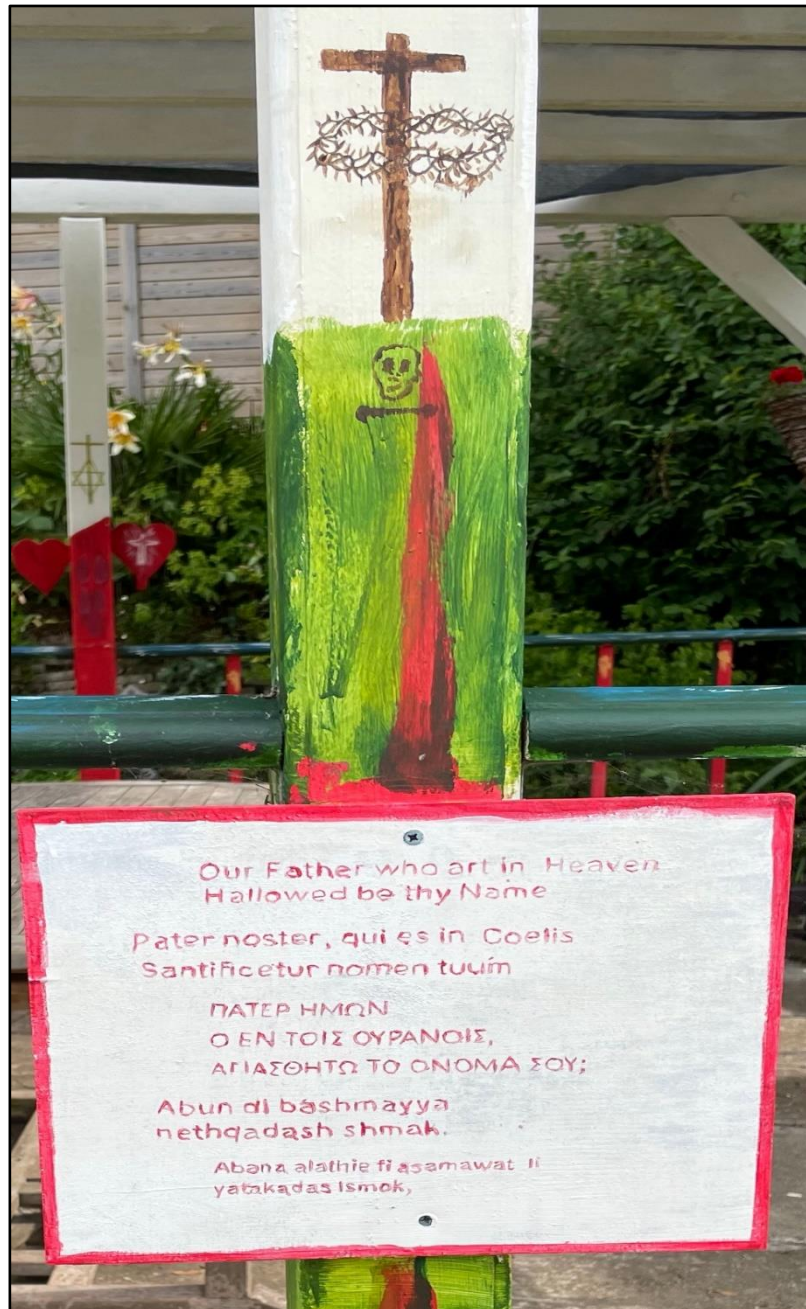 Our Father who art in Heaven
Hallowed be thy Name
Pater noster, qui es in Coelis
Santificetur nomen tuum
ΠΑΤΕΡ ΗΜΩΝ
Ο ΕΝ ΤΟΙΣ ΟΥΡΑΝΟΙΣ,
ΑΓΙΑΣΘΗΤΩ ΤΟ ΟΝΟΜΑ ΣΟΥ;
Abun di bashmayya
nethqadash shmak.
Abana alathie fi asamawat li
yatakadas Ismok,